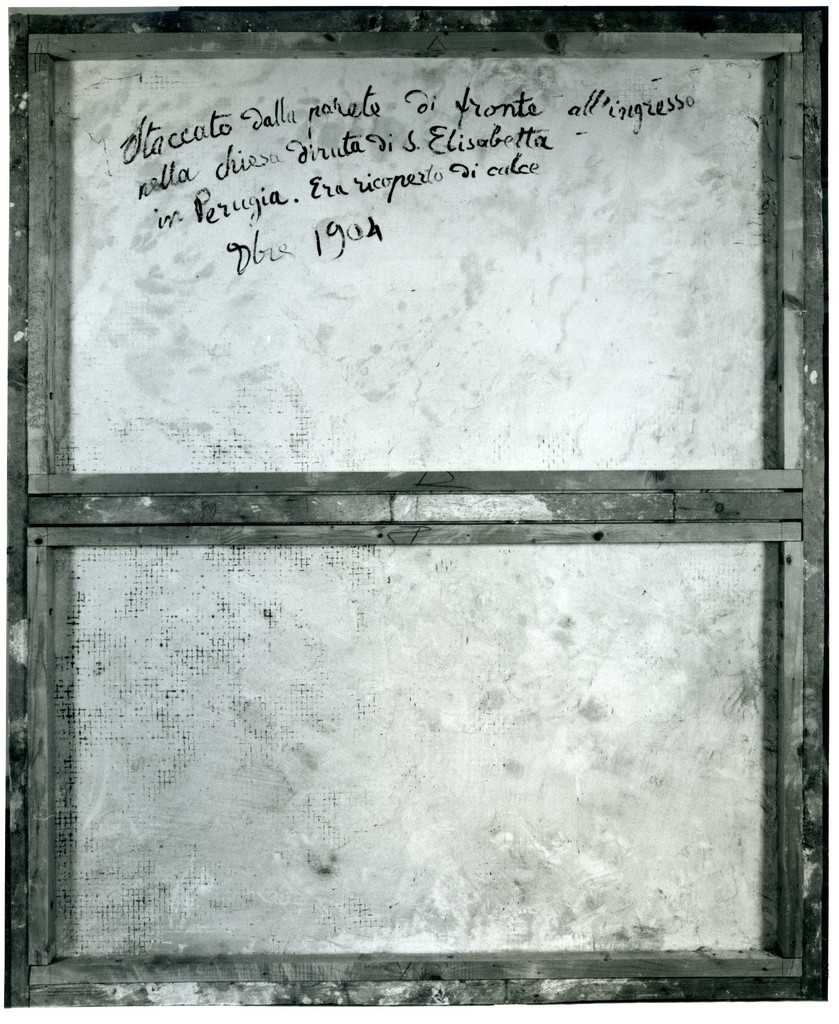 Staccato dalla parete di fronte all'ingresso
nella chiesa diruta di S. Elisabetta
in Perugia. Era ricoperto di calce
1904